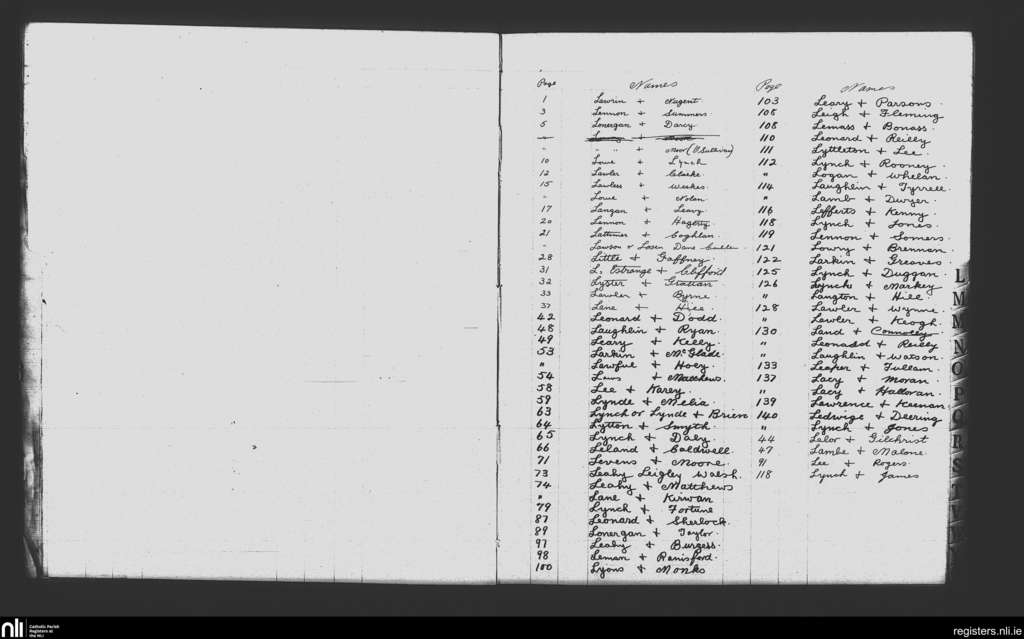 Page Names
1 Lawrin + Nugent
3 Lennon + Summers
5 Lonergan + Darcy
" " " + Moor (O'Sullivan)
10 Lowe + Lynch
12 Lawler + Clarke
15 Lawless + Weekes
" Lowe + Nolan
17 Langan + Leavy
20 Lennon + Hagerty
21 Lattimer + Coghlan
" Lawson or Losen Dane
28 Little + Gaffney
31 L. Estrange + Clifford
32 Lyster + Grattan
33 Lawler + Byrne
37 Lane + Hice
42 Leonard + Dodd
48 Laughlin + Ryan
49 Leary + Kelly
53 Larkin + McGlade
" Lawful + Hoey
54 Laws + Matthews
58 Lee + Karey
59 Lynde + Melia
63 Lynch or Lynde + Brien
64 Lytton + Smyth
65 Lynch + Daly
66 Leland + Caldwell
71 Levens + Moore
73 Leahy Leigley Walsh
74 Leahy + Matthews
" Lane + Kirwan
79 Lynch + Fortune
87 Leonard + Sherlock
89 Lonergan + Taylor
97 Leahy + Burgess
98 Leman + Ranisford
100 Lyons + Monks
Page Names
103 Leary + Parsons
105 Leigh + Fleming
108 Lemass + Bonass
110 Leonard + Reilly
111 Lyttleton + Lee
112 Lynch + Rooney
" Logan + Whelan
114 Laughlin + Tyrrell
" Lamb + Dwyer
116 Lefferts + Kenny
118 Lynch + Jones
119 Lennon + Somers
121 Lowry + Brennan
122 Larkin + Greaves
125 Lynch + Duggan
126 Lynch + Markey
" Langton + Hill
128 Lawler + Wynne
" Lawler + Keogh
130 Land + Connolly
" Leonadd + Reilly
" Laughlin + Watson
133 Leaper + Tullam
137 Lacy + Moran
" Lacy + Halloran
139 Lawrence + Keenan
140 Ledwige + Deering
" Lynch + Jones
44 Lalor + Gilchrist
47 Lambe + Malone
91 Lee + Rogers
118 Lynch + James
L
M
M
N
O
P
Q
R
S
T
nli
Catholic Parish
Registers at
the NLI
registers.nli.ie